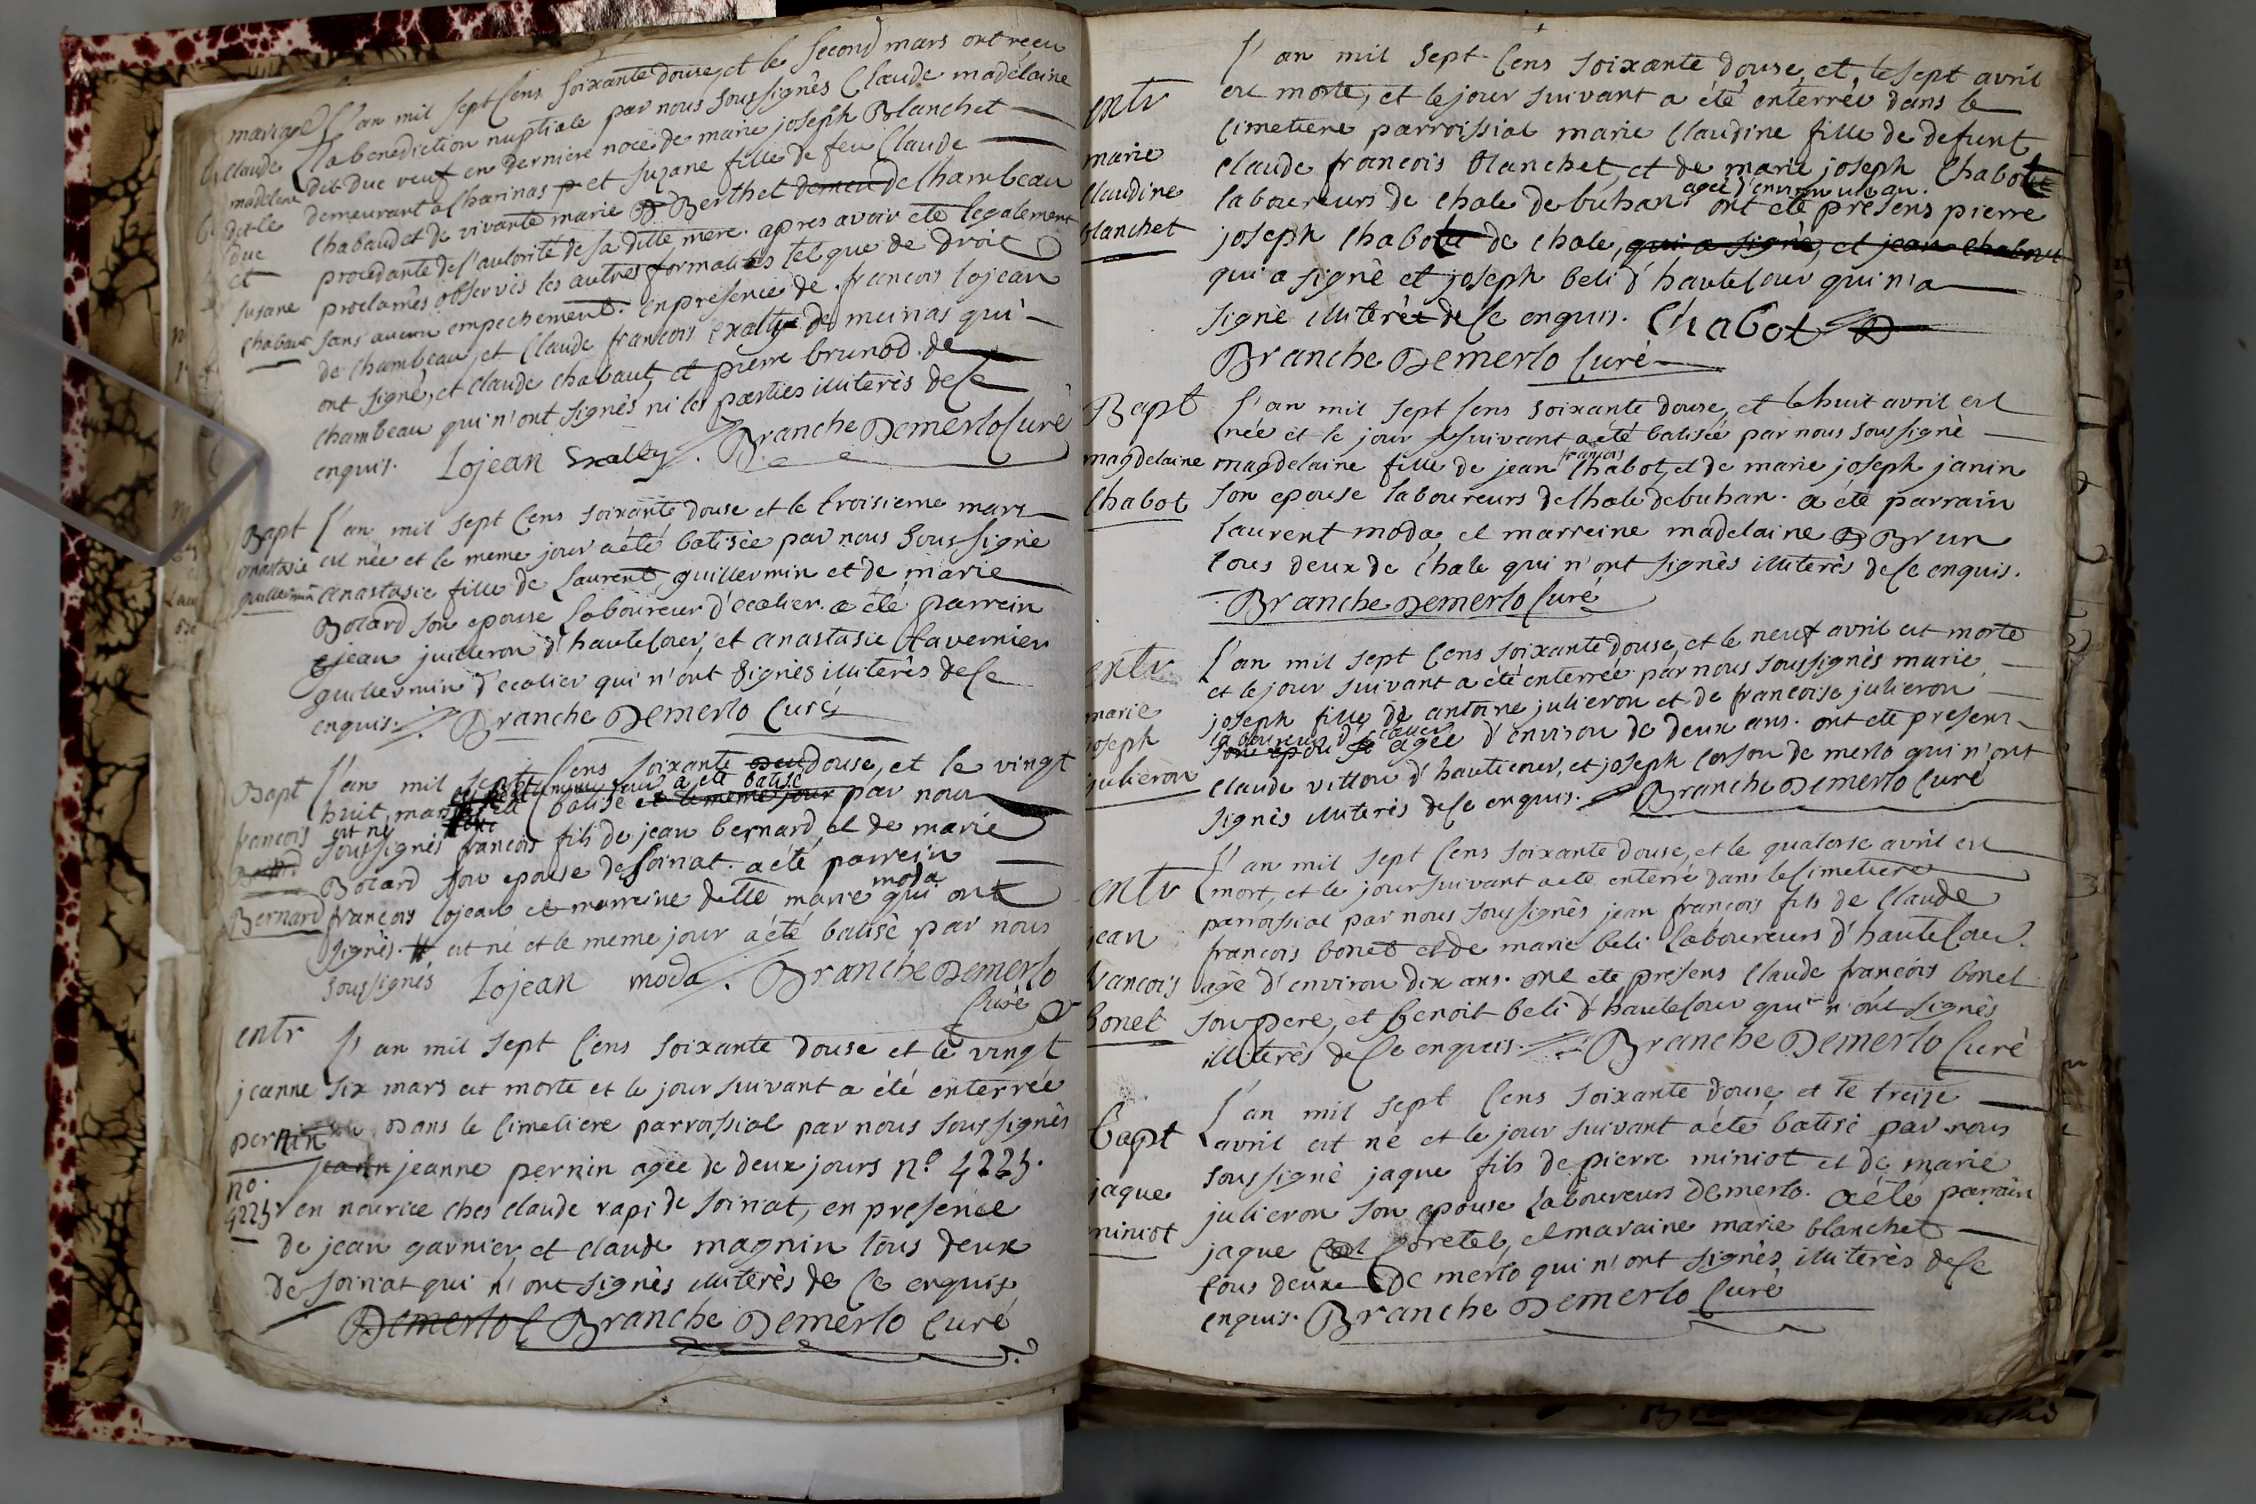 mariage L'an mil sept cens soixante douse, et le second mars ont recu
claude la benediction nuptiale par nous soussignès Claude madelaine
madelene dit Duc veuf en derniere noce de marie joseph Blanchet
dit le demeurant a Charinas et suzane fille de feu Claude
duc Chabaud et de vivante marie Berthet demeu de Chambeau
et procedante de l'autorité de sa ditte mere. apres avoir étè legalement
susane proclamès observès les autres formalitès tel que de droit
chabaut sans aucun empechement. en presence de francois lojean
de chambeau, et Claude francois exalty de munas qui
ont signè, et claude chabaut, et pierre brunod de
chambeau qui n'ont signès ni les parties illiterès de ce
enquis. Lojean Exalty. Branche Demerlo Curè
Bapt L'an mil sept cens soixante douse et le troisieme mars
anastasie est nèe et le meme jour a étè batisèe par nous soussignè
guillermin anastasie fille de Laurent guillermin et de marie
Botard son epouse laboureur d'ecolier. a étè parrein
jean juilleron d'hautecour, et anastasie tavernier
guillermin d'ecolier qui n'ont signès illiterès de ce
enquis. Branche Demerlo Curé
Bapt L'an mil sept cens soixante deu douse, et le vingt
et le meme jour a ete batisè
huit mars batisè et le meme jour par nous
francois est né soussignès francois fils de jean bernard, et de marie
Botard son epouse de soiriat. a étè parrein
Bernard francois lojean et marreine dette marie moda qui ont
signès. # est né et le meme jour a étè batisè par nous
soussignés Lojean moda. Branche Demerlo
Curè
entr L'an mil sept cens soixante douse et le vingt
jeanne six mars est morte et le jour suivant a étè enterrèe
pernin dans le cimetiere parroissial par nous soussignès
jeann jeanne pernin agèe de deux jours n.º 4225.
nº. 4225 en nourice ches claude rapi de soiriat, en presence
de jean garnier, et claude magnin tous deux
de soiriat qui n'ont signès illiterès de ce enquis
Demerlo C Branche Demerlo Curé
L'an mil sept cens soixante douse, et le sept avril
entr est morte, et le jour suivant a étè enterrèe dans le
cimetiere parroissial marie Claudine fille de defunt
marie claude francois blanchet, et de marie joseph Chabot
agèe d'environ un an.
claudine laboureurs de chale de buhan. ont ete presens pierre
blanchet joseph Chabot de chale, qui a signè, et jean chabout
qui a signè et joseph beli d'hautecour qui n'a
signè illiterè de ce enquis. Chabot
Branche Demerlo Curè
Bapt L'an mil sept cens soixante douse, et le huit avril est
nèe et le jour suivant a étè batisèe par nous soussignè
francois
magdelaine magdelaine fille de jean Chabot, et de marie joseph janin
Chabot son epouse laboureurs de chale de buhan. a étè parrain
laurent moda, et marreine madelaine Brun
tous deux de chale qui n'ont signès illiterès de ce enquis.
Branche Demerlo Curé
entr L'an mil sept cens soixante douse, et le neuf avril est morte
et le jour suivant a étè enterrèe par nous soussignès marie
marie joseph fille de antoine julieron et de francoise julieron
laboureurs d'ecolier
joseph son epou agèe d'environ de deux ans. ont ete presens
julieron claude vitton d'hautecour, et joseph corson de merlo qui n'ont
signès illiterès de ce enquis. Branche Demerlo Curé
L'an mil sept cens soixante douse, et le quatorse avril est
entr mort, et le jour suivant a etè enterrè dans le cimetiere
parroissial par nous soussignès jean francois fils de Claude
jean francois bonet et de marie beli laboureurs d'hautecour.
francois agè d'environ dix ans. ont ete presens Claude francois bonet
bonet son pere, et benoit beli d'hautecour qui n'ont signès
illiterès de ce enquis. Branche Demerlo Curè
L'an mil sept cens soixante douse, et le treize
bapt avril est né et le jour suivant a étè batisè par nous
soussignè jaque fils de pierre miniot et de marie
jaque julieron son epouse laboureurs Demerlo. a étè parrain
miniot jaque Coretet, et maraine marie blanchet
tous deux de merlo qui n'ont signès illiterès de ce
enquis. Branche Demerlo Curè